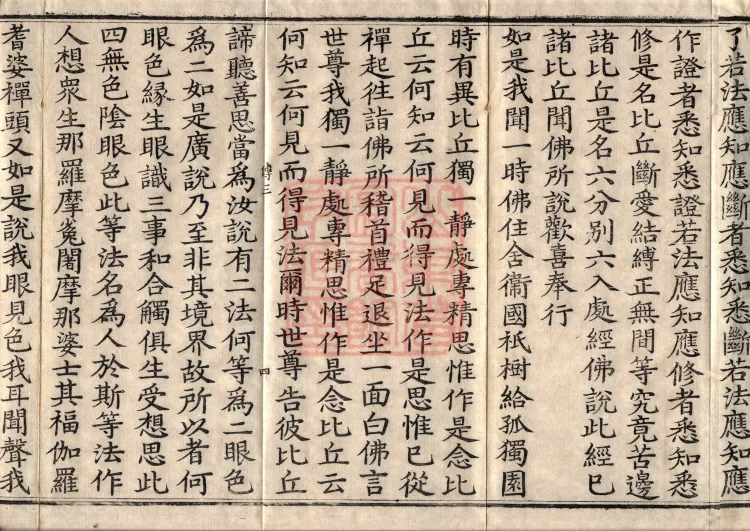 了若法應知應斷者悉知悉斷若法應知應
作證者悉知悉證若法應知應修者悉知悉
修是名比丘斷愛結縛正無間等究竟苦邊
諸比丘是名六分別六入處經佛說此經已
諸比丘聞佛所說歡喜奉行
如是我聞一時佛住舍衞國祇樹給孤獨園
時有異比丘獨一靜處專精思惟作是念比
丘云何知云何見而得見法作是思惟已從
禪起往詣佛所稽首禮足退坐一面白佛言
世尊我獨一靜處專精思惟作是念比丘云
何知云何見而得見法爾時世尊告彼比丘
傅三 四
諦聽善思當為汝說有二法何等為二眼色
為二如是廣說乃至非其境界故所以者何
眼色緣生眼識三事和合觸俱生受想思此
四無色陰眼色此等法名為人於斯等法作
人想衆生那羅摩㝹闍摩那婆士其福伽羅
耆婆禪頭又如是說我眼見色我耳聞聲我